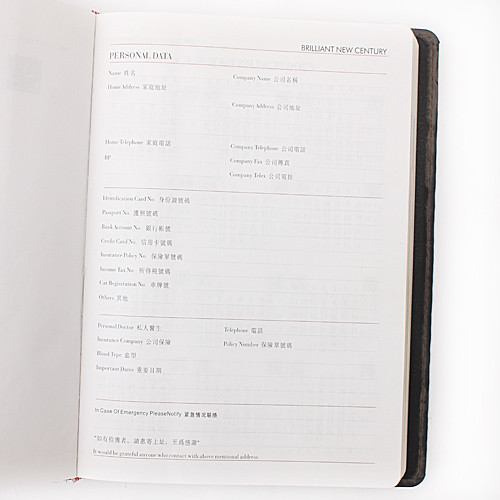 BRILLIANT NEW CENTURY
PERSONAL DATA
Name 姓名
Company Name 公司名稱
Home Address 家庭地址
Company Address 公司地址
Home Telephone 家庭電話
Company Telephone 公司電話
BP
Company Fax 公司傳真
Company Telex 公司電掛
Identification Card No. 身份證號碼
Passport No. 護照號碼
Bank Account No. 銀行帳號
Credit Card No. 信用卡號碼
Insurance Policy No. 保險單號碼
Income Tax No. 所得稅號碼
Car Registration No. 車牌號
Others 其他
Personal Doctor 私人醫生
Telephone 電話
Insurance Company 公司保險
Policy Number 保險單號碼
Blood Type 血型
Important Dates 重要日期
In Case Of Emergency PleaseNotify 緊急情況聯絡
"如有拾獲者，請惠寄上址，至爲感謝"
It would be grateful anyone who contact with above mentional address.